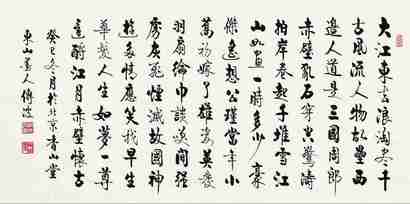 大江東去浪淘尽千
古風流人物故壘西
邊人道是三國周郎
赤壁亂石穿空驚濤
拍岸卷起千堆雪江
山如畫一時多少豪
傑遙想公瑾當年小
喬初嫁了雄姿英發
羽扇綸巾談笑間強
虜灰飛煙滅故國神
遊多情應笑我早生
華髮人生如夢一尊
還酹江月赤壁懷古
癸巳冬月於北京香山堂
東山人